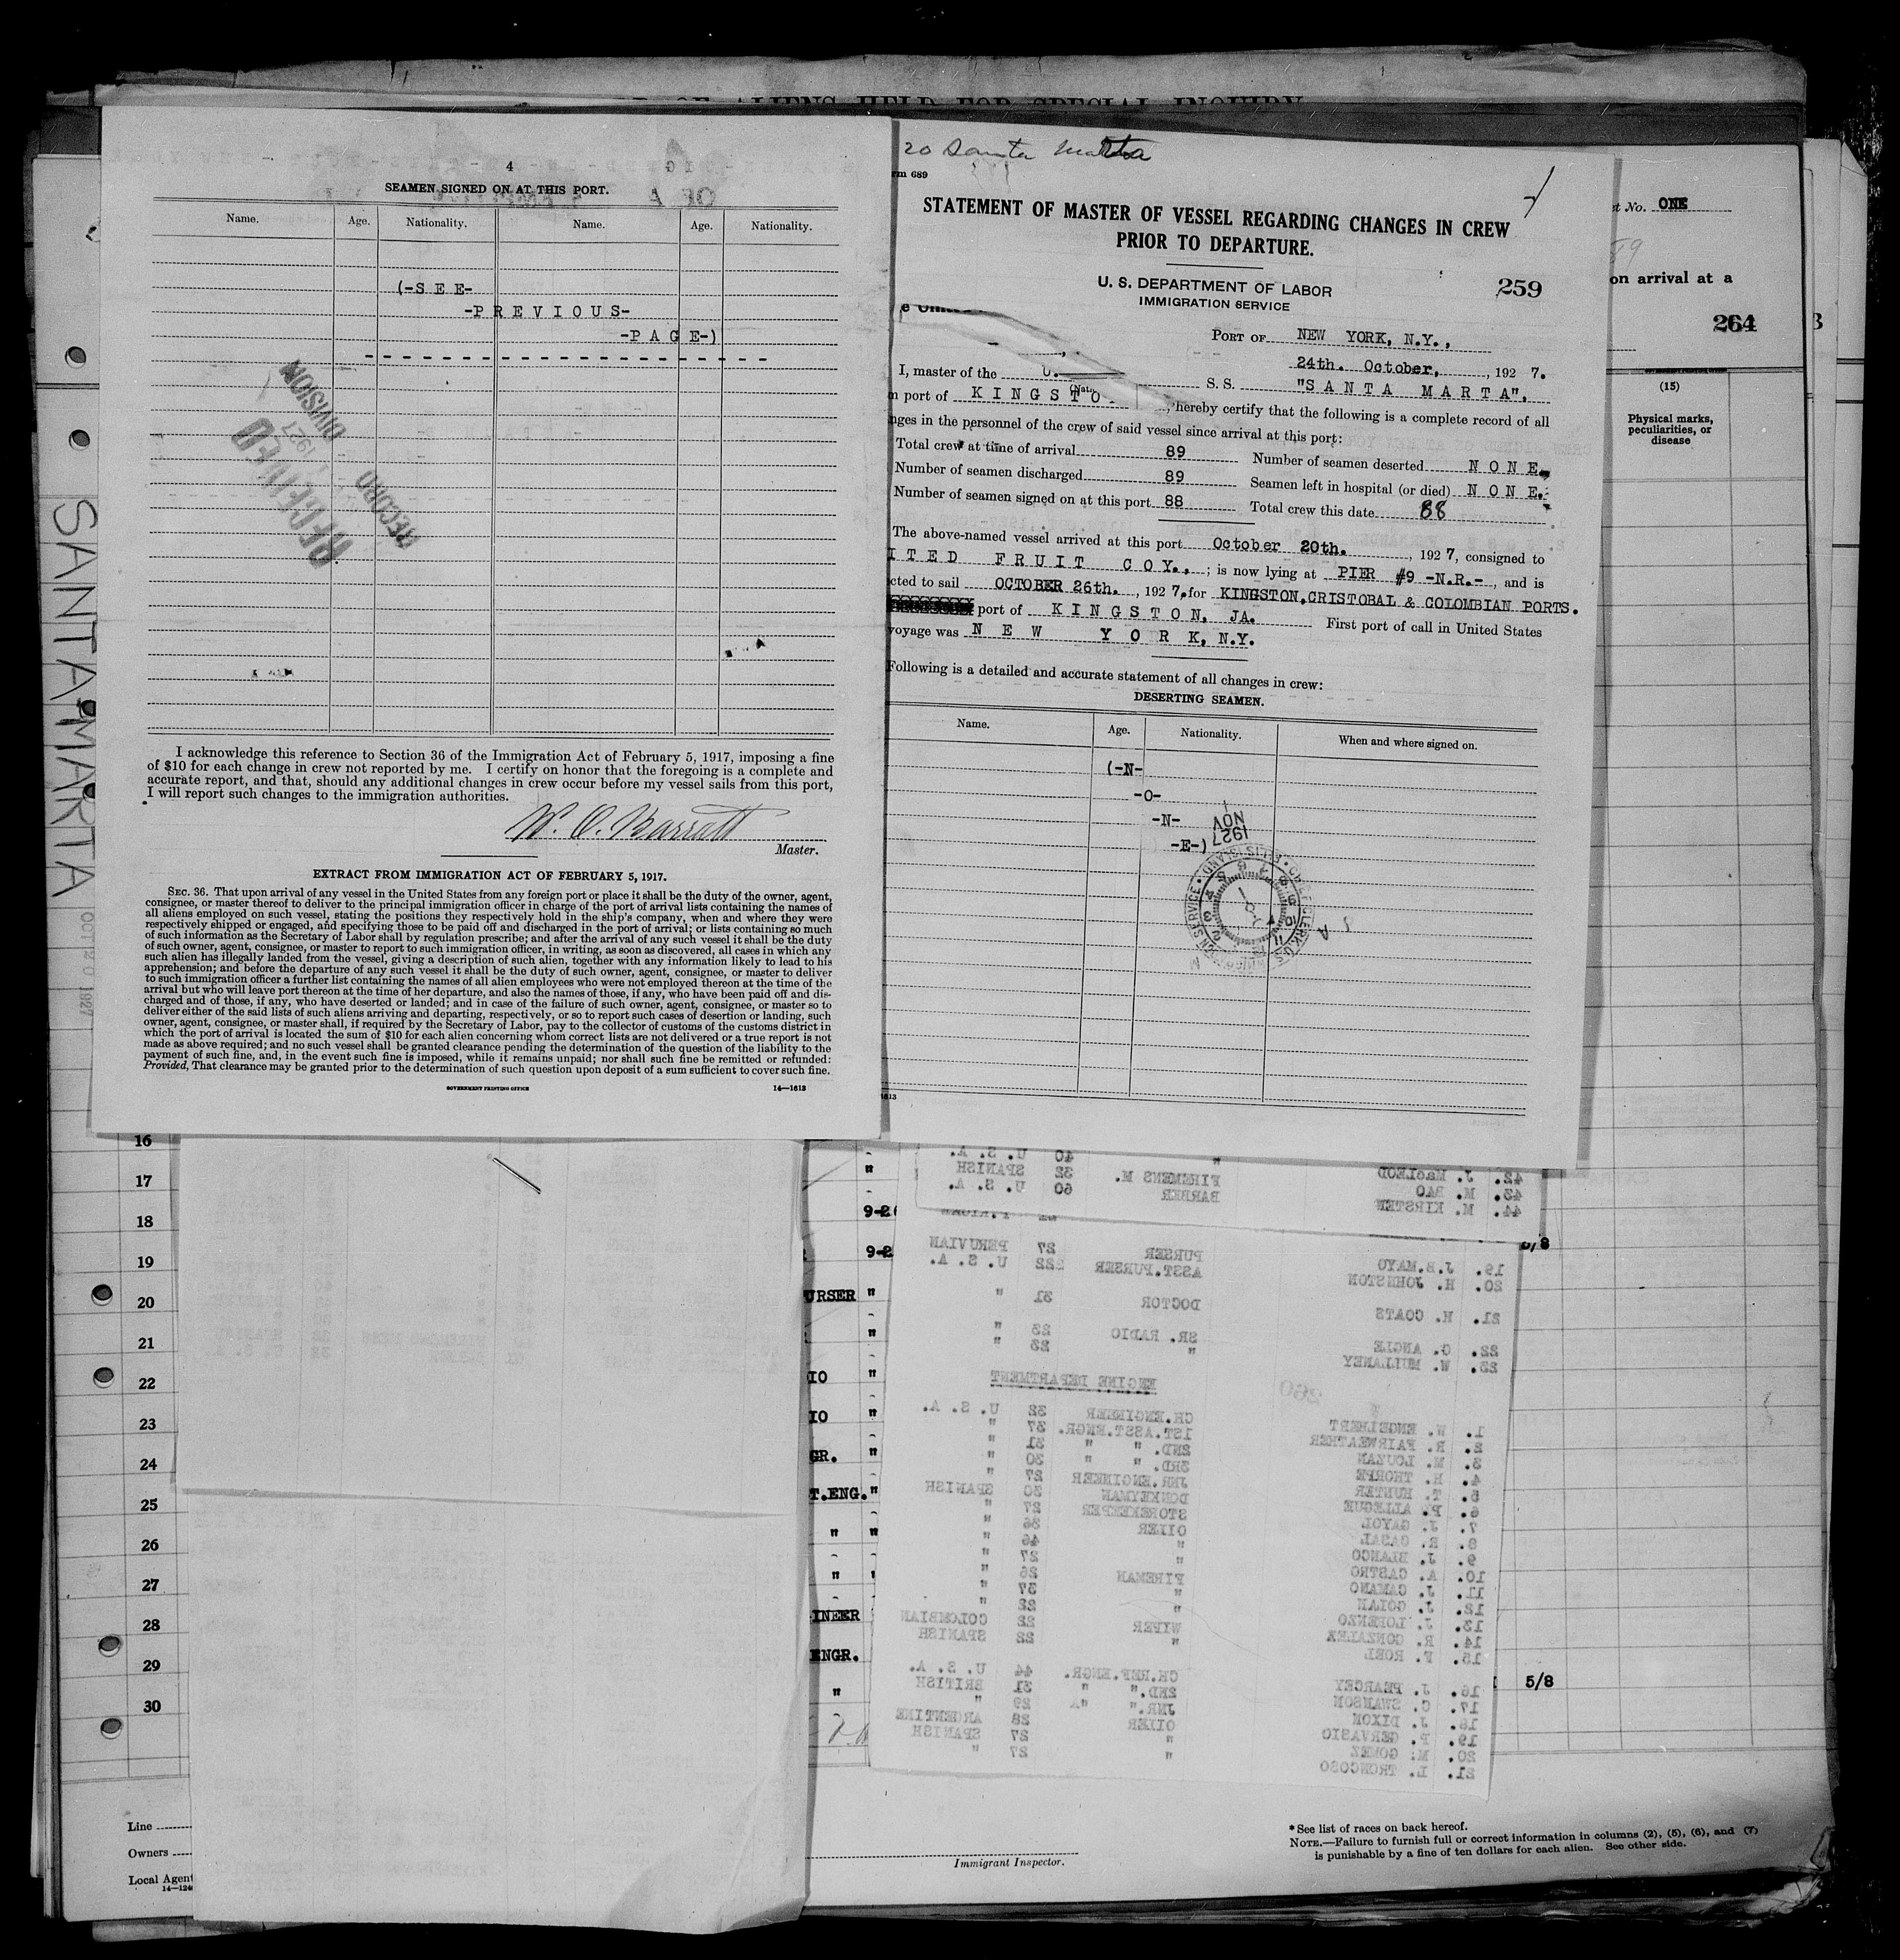 OF ALIENS HELD FOR SPECIAL INQUIRY
4
SEAMEN SIGNED ON AT THIS PORT.
Name. Age. Nationality. Name. Age. Nationality.
(-S E E-
-P R E V I O U S-
-P A G E-)
RECEIVED
1927
RECORD
DIVISION
I acknowledge this reference to Section 36 of the Immigration Act of February 5, 1917, imposing a fine
of $10 for each change in crew not reported by me. I certify on honor that the foregoing is a complete and
accurate report, and that, should any additional changes in crew occur before my vessel sails from this port,
I will report such changes to the immigration authorities.
W. O. Barratt
Master.
EXTRACT FROM IMMIGRATION ACT OF FEBRUARY 5, 1917.
SEC. 36. That upon arrival of any vessel in the United States from any foreign port or place it shall be the duty of the owner, agent,
consignee, or master thereof to deliver to the principal immigration officer in charge of the port of arrival lists containing the names of
all aliens employed on such vessel, stating the positions they respectively hold in the ship's company, when and where they were
respectively shipped or engaged, and specifying those to be paid off and discharged in the port of arrival; or lists containing so much
of such information as the Secretary of Labor shall by regulation prescribe; and after the arrival of any such vessel it shall be the duty
of such owner, agent, consignee, or master to report to such immigration officer, in writing, as soon as discovered, all cases in which any
such alien has illegally landed from the vessel, giving a description of such alien, together with any information likely to lead to his
apprehension; and before the departure of any such vessel it shall be the duty of such owner, agent, consignee, or master to deliver
to such immigration officer a further list containing the names of all alien employees who were not employed thereon at the time of the
arrival but who will leave port thereon at the time of her departure, and also the names of those, if any, who have been paid off and dis-
charged and of those, if any, who have deserted or landed; and in case of the failure of such owner, agent, consignee, or master so to
deliver either of the said lists of such aliens arriving and departing, respectively, or so to report such cases of desertion or landing, such
owner, agent, consignee, or master shall, if required by the Secretary of Labor, pay to the collector of customs of the customs district in
which the port of arrival is located the sum of $10 for each alien concerning whom correct lists are not delivered or a true report is not
made as above required; and no such vessel shall be granted clearance pending the determination of the question of the liability to the
payment of such fine, and, in the event such fine is imposed, while it remains unpaid; nor shall such fine be remitted or refunded:
Provided, That clearance may be granted prior to the determination of such question upon deposit of a sum sufficient to cover such fine.
GOVERNMENT PRINTING OFFICE 14—1613
SANTA MARTA OCT 20 1927
20 Santa Marta
rm 689
STATEMENT OF MASTER OF VESSEL REGARDING CHANGES IN CREW
PRIOR TO DEPARTURE.
U. S. DEPARTMENT OF LABOR
IMMIGRATION SERVICE
259
PORT OF NEW YORK, N.Y.,
24th. October, , 192 7.
I, master of the S. S. "S A N T A M A R T A",
port of K I N G S T O , hereby certify that the following is a complete record of all
nges in the personnel of the crew of said vessel since arrival at this port:
Total crew at time of arrival 89 Number of seamen deserted N O N E.
Number of seamen discharged 89 Seamen left in hospital (or died) N O N E.
Number of seamen signed on at this port 88 Total crew this date 88
The above-named vessel arrived at this port October 20th. , 192 7, consigned to
ITED FRUIT COY., ; is now lying at PIER #9 -N.R.- , and is
cted to sail OCTOBER 26th. , 192 7, for KINGSTON, CRISTOBAL & COLOMBIAN PORTS.
port of K I N G S T O N, JA. First port of call in United States
voyage was N E W Y O R K, N.Y.
Following is a detailed and accurate statement of all changes in crew:
DESERTING SEAMEN.
Name. Age. Nationality. When and where signed on.
(-N-
-O-
-N-
-E-)
NOV 1
1927
1613
t No. ONE
on arrival at a
264
(15)
Physical marks,
peculiarities, or
disease
40 U. S. A.
42. J. MacLEOD FIREMENS M. 32 SPANISH
43. M. BAO BARBER 60 U. S. A.
44. M. KIRSTEN
19. J.B.MAYO PURSER 27 PERUVIAN
20. H. JOHNSTON ASST.PURSER 22 U. S. A.
21. H. COATS DOCTOR 31 "
22. G. ANGLE SR. RADIO 23 "
23. W. MULLANEY " 23 "
260
ENGINE DEPARTMENT
1. W. ENGELBERT CH.ENGINEER 32 U. S. A.
2. R. FAIRWEATHER 1ST.ASST.ENGR. 37 "
3. M. LOUZAN 2ND. " " 31 "
4. H. THORPE 3RD. " " 30 "
5. T. HUNTER JNR.ENGINEER 27 "
6. P. ALLEGUE DONKEYMAN 30 SPANISH
7. J. GAYOL STOREKEEPER 27 "
8. R. CASAL OILER 36 "
9. J. BLANCO " 46 "
10. A. CASTRO " 27 "
11. J. CAMANO FIREMAN 26 "
12. J. GOIAN " 37 "
13. J. LORENZO " 22 "
14. R. GONZALEZ WIPER 22 COLOMBIAN
15. F. ROEL " 22 SPANISH
16. J. PEARCEY CH.REF.ENGR. 44 U. S. A.
17. C. SWANSON 2ND. " " 31 BRITISH
18. J. DIXON JNR. " " 29 "
19. P. GERVASIO OILER 28 ARGENTINE
20. M. GOMEZ " 27 SPANISH
21. L. TRONCOSO " 27 "
16
17
18 9-2
19 9-2
20 URSER "
21 "
22 IO "
23 IO "
24 GR. "
25 T.ENG. "
26 " "
27 "
28 INEER
29 ENGR.
30 "
5/8
5/8
Line
Owners
Local Agent
14—124
Immigrant Inspector.
* See list of races on back hereof.
NOTE.—Failure to furnish full or correct information in columns (2), (5), (6), and (7)
is punishable by a fine of ten dollars for each alien. See other side.